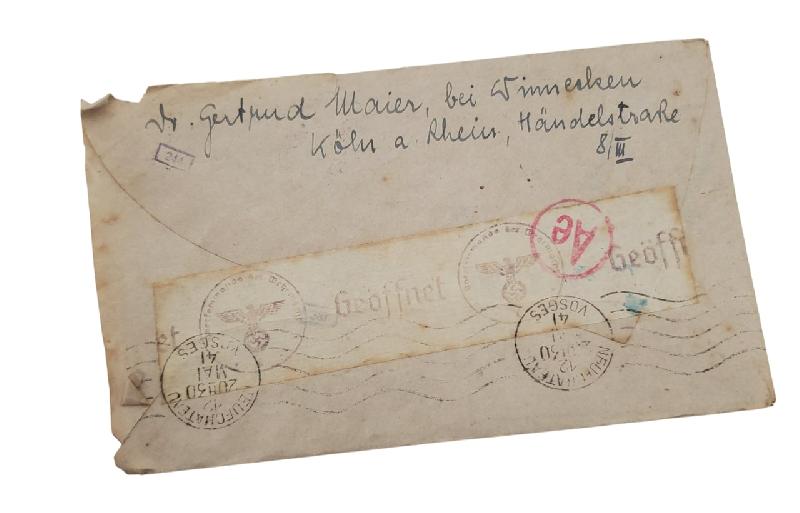 Dr. Gertrud Maier, bei Winnecken
Köln a. Rhein, Händelstraße
8/III
244
Ae
Geöffnet
Geöffn
NEUFCHATEAU
20H30
MAI
41
VOSGES
NEUFCHATEAU
12
20H30
41
VOSGES